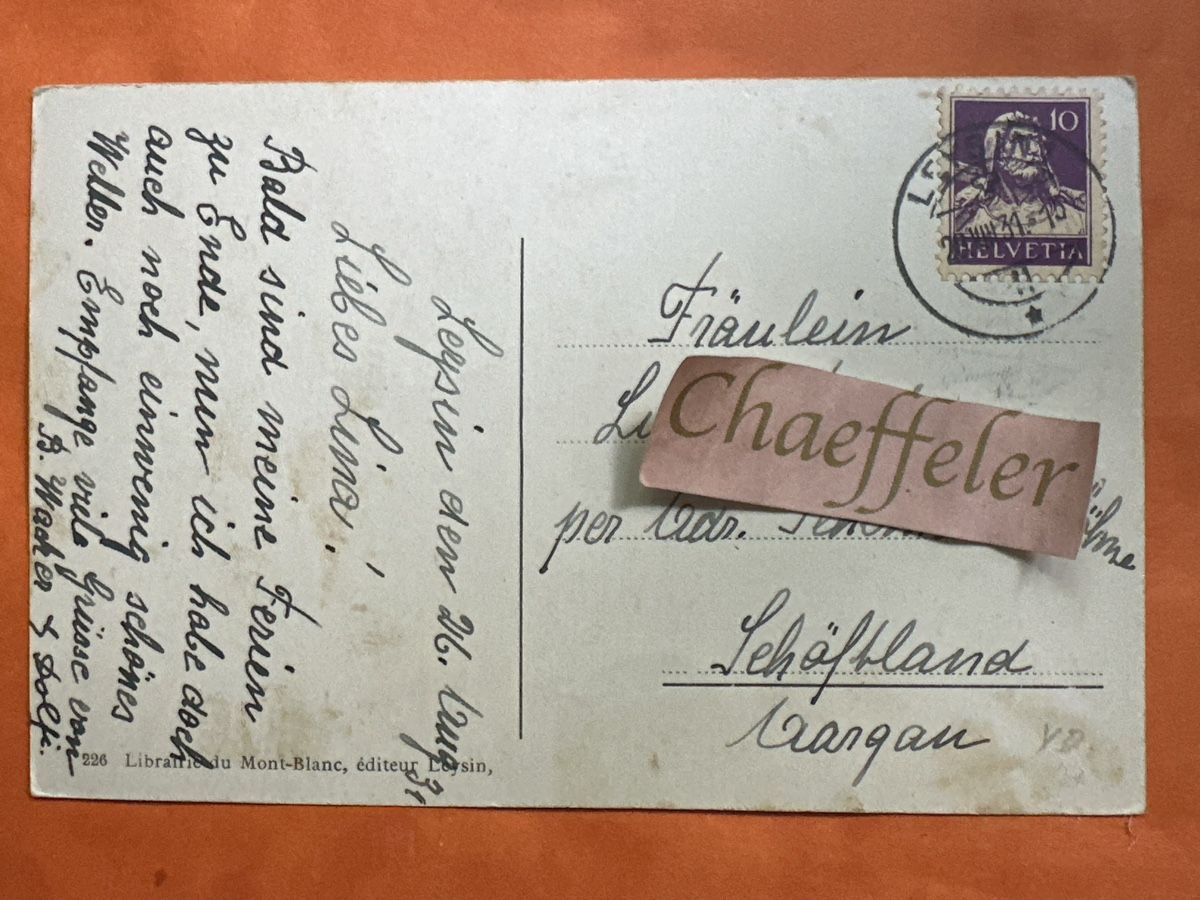 Leysin den 26. Aug 31
Liebes Lina!,
Bald sind meine Ferien
zu Ende, nun ich habe doch
auch noch einwenig schönes
Wetter. Empfange vile Grüsse von
B. Wacker & Dolfi.
226 Librairie du Mont-Blanc, éditeur Leysin,
10
HELVETIA
LEYSIN
VIII 31
Fräulein
Chaeffeler
per Adr.
Schöftland
Aargau